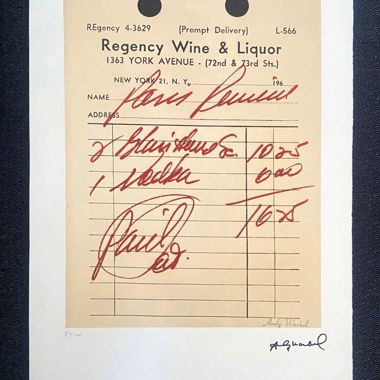 REgency 4-3629 (Prompt Delivery) L-566
Regency Wine & Liquor
1363 YORK AVENUE - (72nd & 73rd Sts.)
NEW YORK 21, N. Y. 196
NAME Paris Review
ADDRESS
2 10 25
1 Vodka 6 00
16 25
Paid
Andy Warhol
Andy Warhol